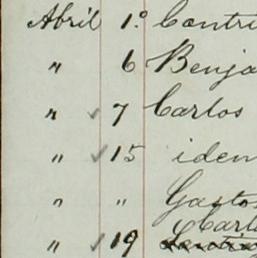 Abril 1.º Contri
" 6 Benja
" ✓ 7 Carlos
" ✓ 15 idem
" " Gasto
Carl
" ✓ 19